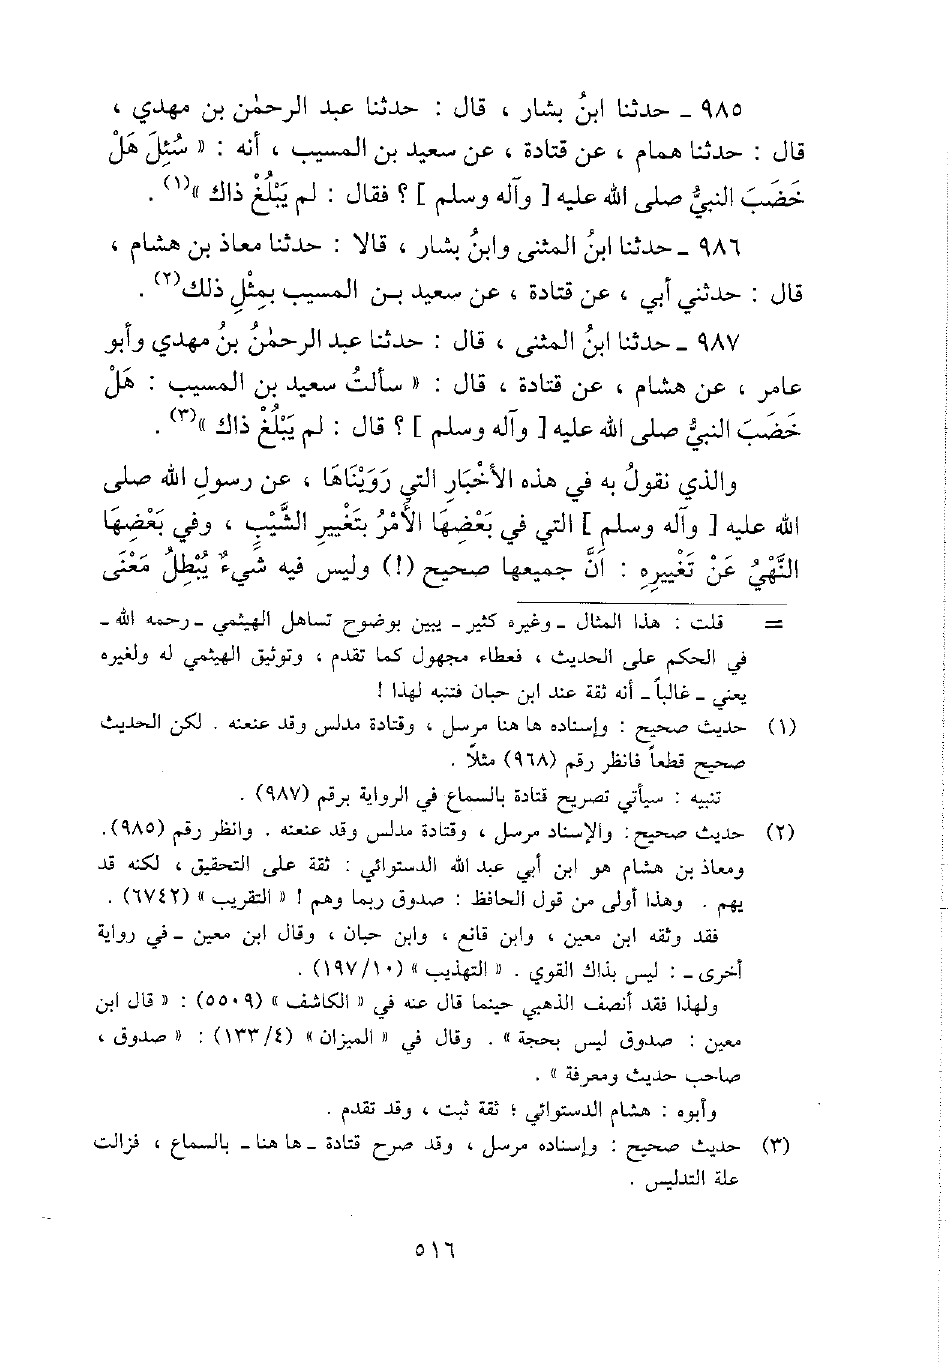 ٩٨٥ ـ حدثنا ابنُ بشار ، قال : حدثنا عبد الرحمٰن بن مهدي ،
قال : حدثنا همام ، عن قتادة ، عن سعيد بن المسيب ، أنه : « سُئِلَ هَلْ
خَضَبَ النبيُّ صلى الله عليه [ وآله وسلم ] ؟ فقال : لم يَبْلُغْ ذاك »(١) .
٩٨٦ ـ حدثنا ابنُ المثنى وابنُ بشار ، قالا : حدثنا معاذ بن هشام ،
قال : حدثني أبي ، عن قتادة ، عن سعيد بـن المسيب بِمِثْلِ ذلك(٢) .
٩٨٧ ـ حدثنا ابنُ المثنى ، قال : حدثنا عبد الرحمٰنُ بنُ مهدي وأبو
عامر ، عن هشام ، عن قتادة ، قال : « سألتُ سعيد بن المسيب : هَلْ
خَضَبَ النبيُّ صلى الله عليه [ وآله وسلم ] ؟ قال : لم يَبْلُغْ ذاك »(٣) .
والذي نقولُ به في هذه الأخْبَارِ التي رَوَيْنَاهَا ، عن رسولِ الله صلى
الله عليه [ وآله وسلم ] التي في بَعْضِهَا الأمْرُ بتَغْييرِ الشَّيْبِ ، وفي بَعْضِهَا
النَّهْيُ عَنْ تَغْييرِهِ : أنَّ جميعها صحيح (!) وليس فيه شَيءٌ يُبْطِلُ مَعْنَى
= قلت : هذا المثال ـ وغيره كثير ـ يبين بوضوح تساهل الهيثمي ـ رحمه الله ـ
في الحكم على الحديث ، فعطاء مجهول كما تقدم ، وتوثيق الهيثمي له ولغيره
يعني ـ غالباً ـ أنه ثقة عند ابن حبان فتنبه لهذا !
(١) حديث صحيح : وإسناده ها هنا مرسل ، وقتادة مدلس وقد عنعنه . لكن الحديث
صحيح قطعاً فانظر رقم (٩٦٨) مثلاً .
تنبيه : سيأتي تصريح قتادة بالسماع في الرواية برقم (٩٨٧) .
(٢) حديث صحيح : والإسناد مرسل ، وقتادة مدلس وقد عنعنه . وانظر رقم (٩٨٥).
ومعاذ بن هشام هو ابن أبي عبد الله الدستوائي : ثقة على التحقيق ، لكنه قد
يهم . وهذا أولى من قول الحافظ : صدوق ربما وهم ! « التقريب » (٦٧٤٢) .
فقد وثقه ابن معين ، وابن قانع ، وابن حبان ، وقال ابن معين ـ في رواية
أخرى ـ : ليس بذاك القوي . « التهذيب » (١٠/١٩٧) .
ولهذا فقد أنصف الذهبي حينما قال عنه في « الكاشف » (٥٥٠٩) : « قال ابن
معين : صدوق ليس بحجة » . وقال في « الميزان » (٤/١٣٣) : « صدوق ،
صاحب حديث ومعرفة » .
وأبوه : هشام الدستوائي ؛ ثقة ثبت ، وقد تقدم .
(٣) حديث صحيح : وإسناده مرسل ، وقد صرح قتادة ـ ها هنا ـ بالسماع ، فزالت
علة التدليس .
٥١٦